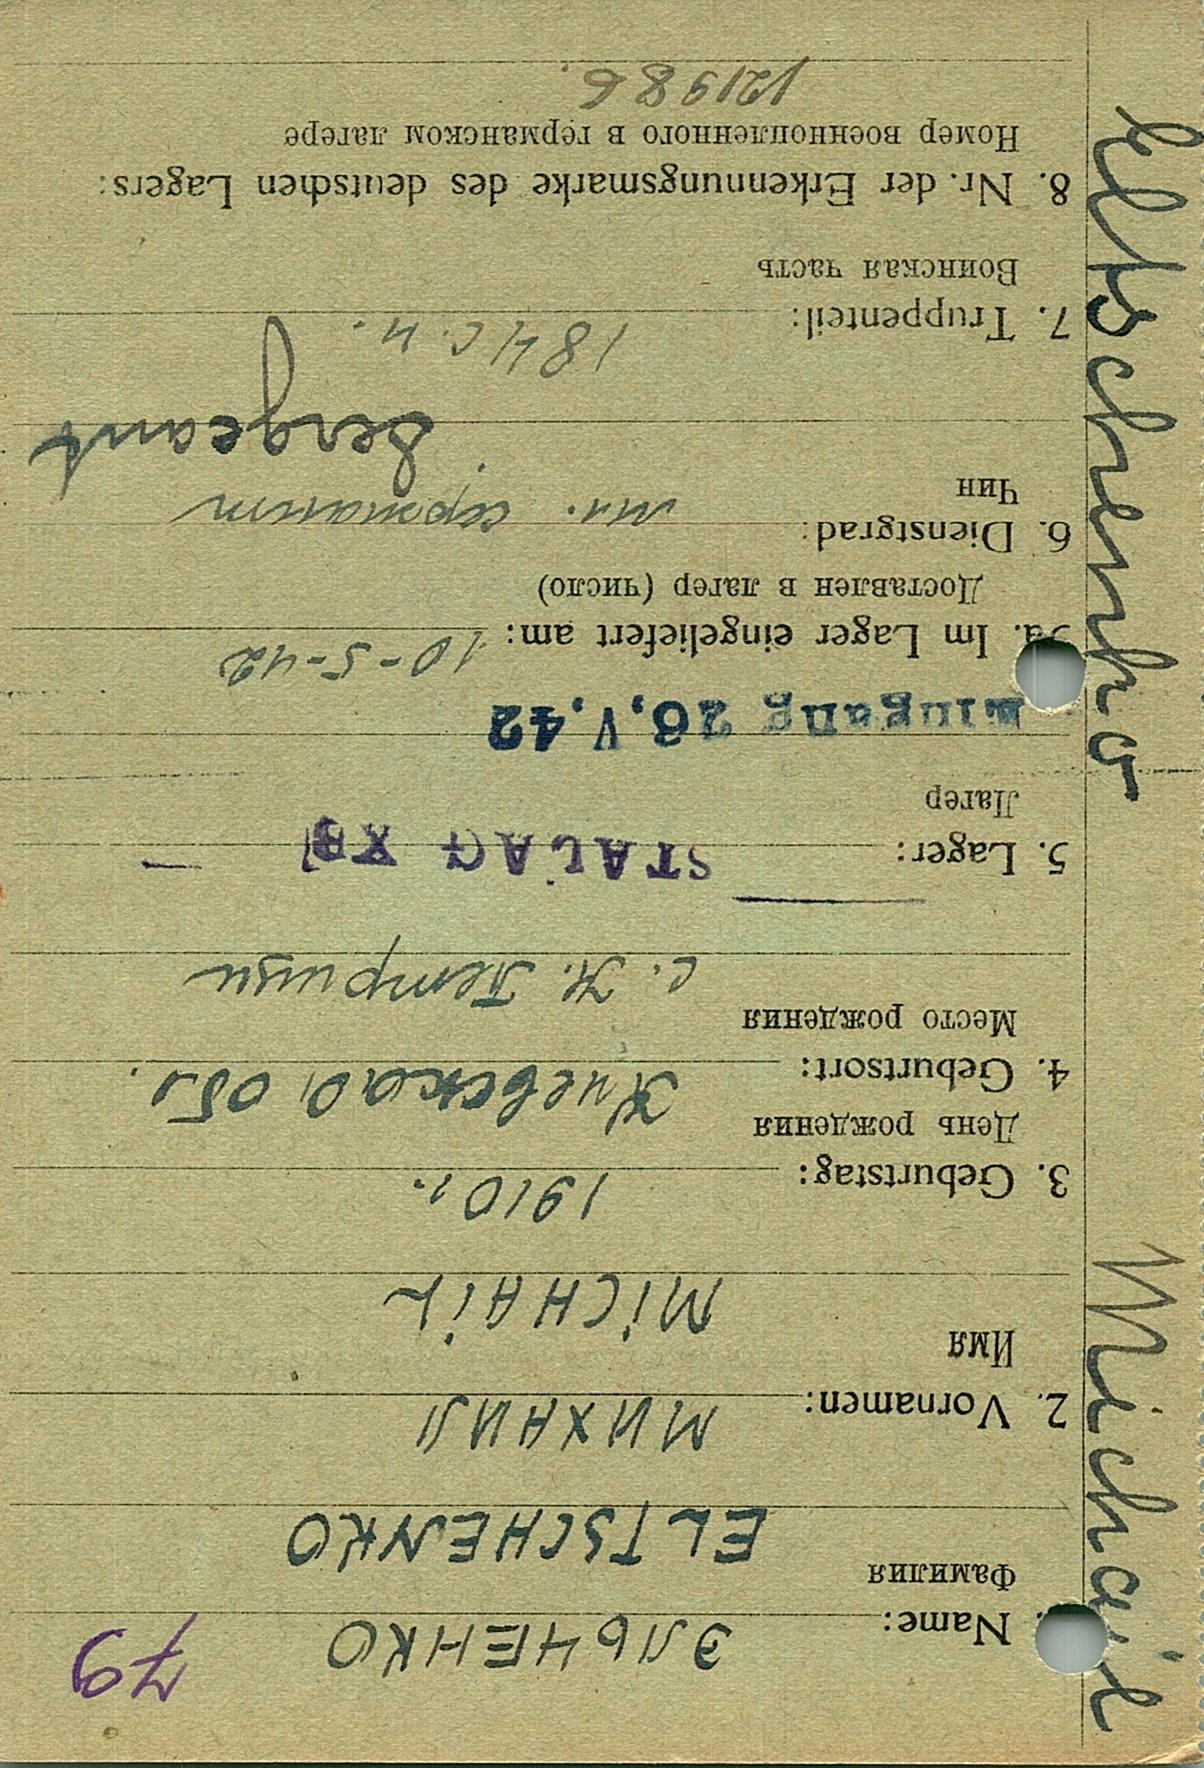 79
1. Name: ЭЛЬЧЕНКО
Фамилия
ELTSCHENKO
2. Vornamen: МИХАИЛ
Имя
MiCHAiL
3. Geburtstag: 1910 г.
День рождения
4. Geburtsort: Киевская обл.
Место рождения
с. Н. Петривци
5. Lager: STALAG XB
Лагер
Eingang 26.V.42
5a. Im Lager eingeliefert am: 10-5-42
Доставлен в лагер (число)
6. Dienstgrad: мл. сержант
Чин
Sergeant
7. Truppenteil: 184 с.п.
Воинская часть
8. Nr. der Erkennungsmarke des deutschen Lagers:
Номер военнопленного в германском лагере
121986.
Michail Eltschenko